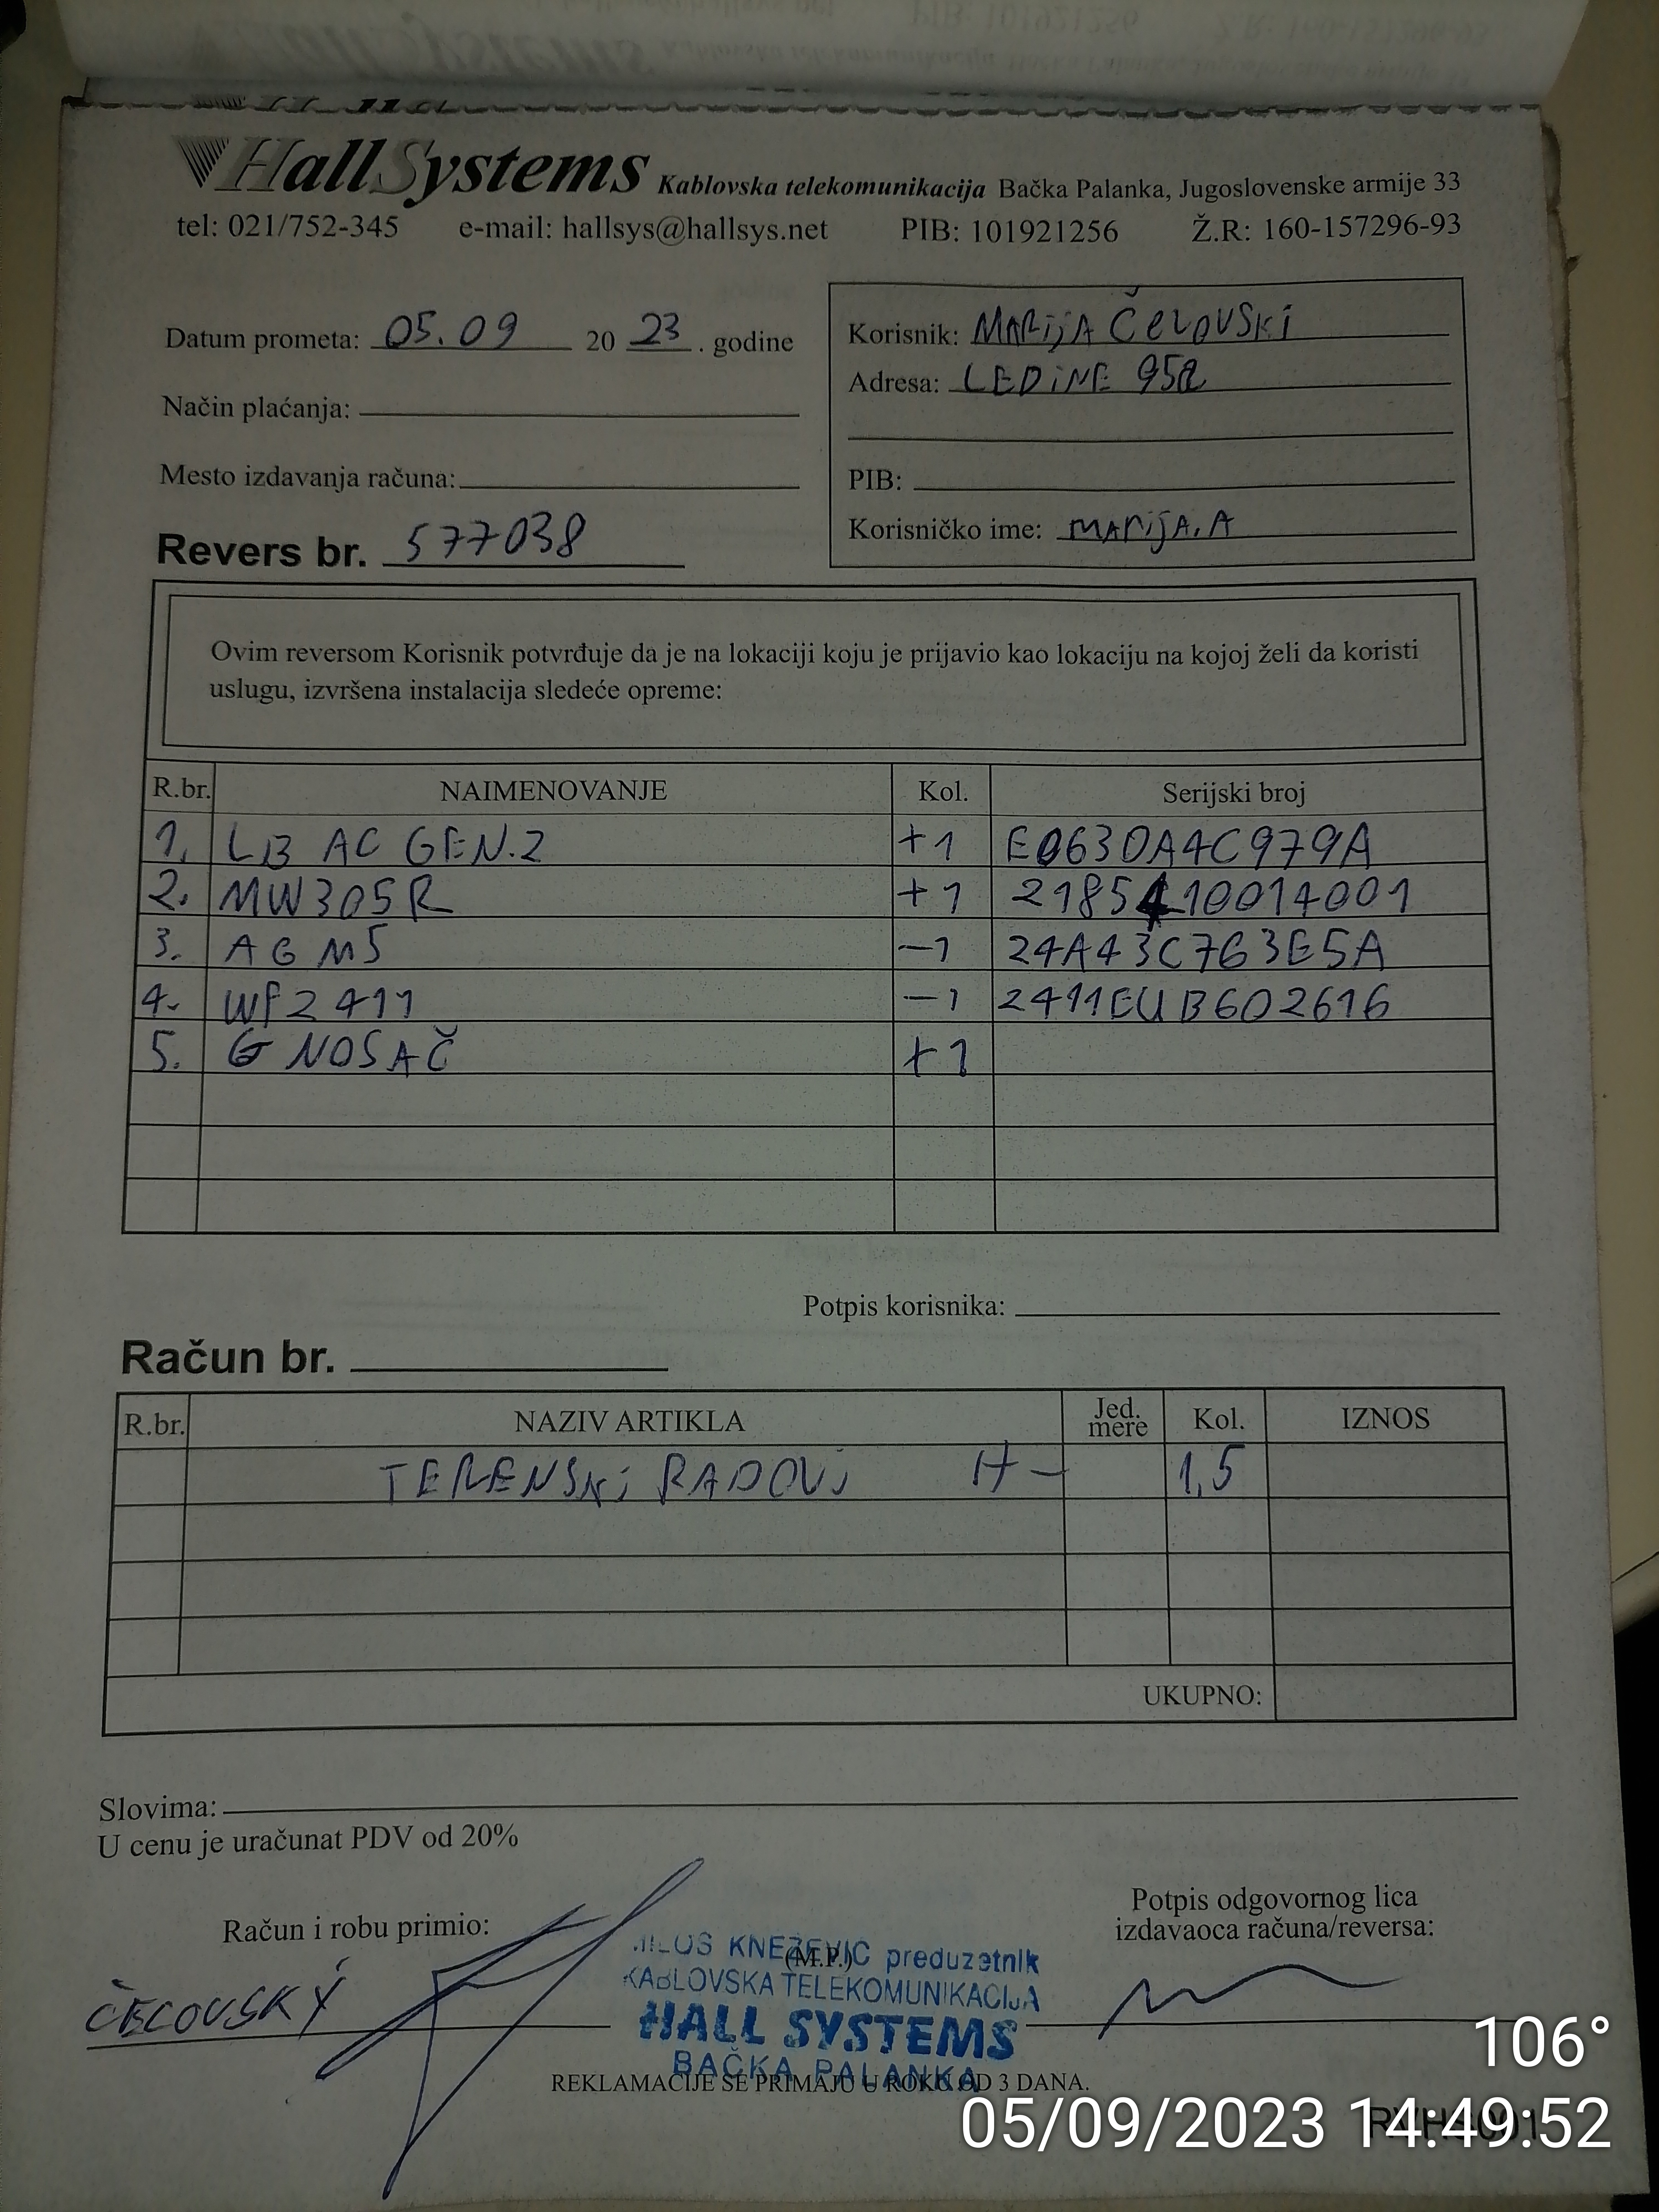 HallSystems Kablovska telekomunikacija Bačka Palanka, Jugoslovenske armije 33
tel: 021/752-345 e-mail: hallsys@hallsys.net PIB: 101921256 Ž.R: 160-157296-93
Datum prometa: 05.09 20 23 . godine
Način plaćanja:
Mesto izdavanja računa:
Revers br. 577038
Korisnik: MARIJA ČELOVSKI
Adresa: LEDINE 95A
PIB:
Korisničko ime: MARIJA.A
Ovim reversom Korisnik potvrđuje da je na lokaciji koju je prijavio kao lokaciju na kojoj želi da koristi
uslugu, izvršena instalacija sledeće opreme:
R.br. NAIMENOVANJE Kol. Serijski broj
1. LB AC GEN.2 +1 E0630A4C979A
2. MW305R +1 2185410014001
3. AG M5 -1 24A43C763E5A
4. WF2411 -1 2411EUB602616
5. G NOSAČ +1
Potpis korisnika:
Račun br.
R.br. NAZIV ARTIKLA Jed. mere Kol. IZNOS
TERENSKI RADOVI H - 1,5
UKUPNO:
Slovima:
U cenu je uračunat PDV od 20%
Račun i robu primio:
ČELOVSKY
(M.P.)
MILOŠ KNEŽEVIC preduzetnik
KABLOVSKA TELEKOMUNIKACIJA
HALL SYSTEMS
BAČKA PALANKA
Potpis odgovornog lica
izdavaoca računa/reversa:
REKLAMACIJE SE PRIMAJU U ROKU OD 3 DANA.
106°
05/09/2023 14:49:52